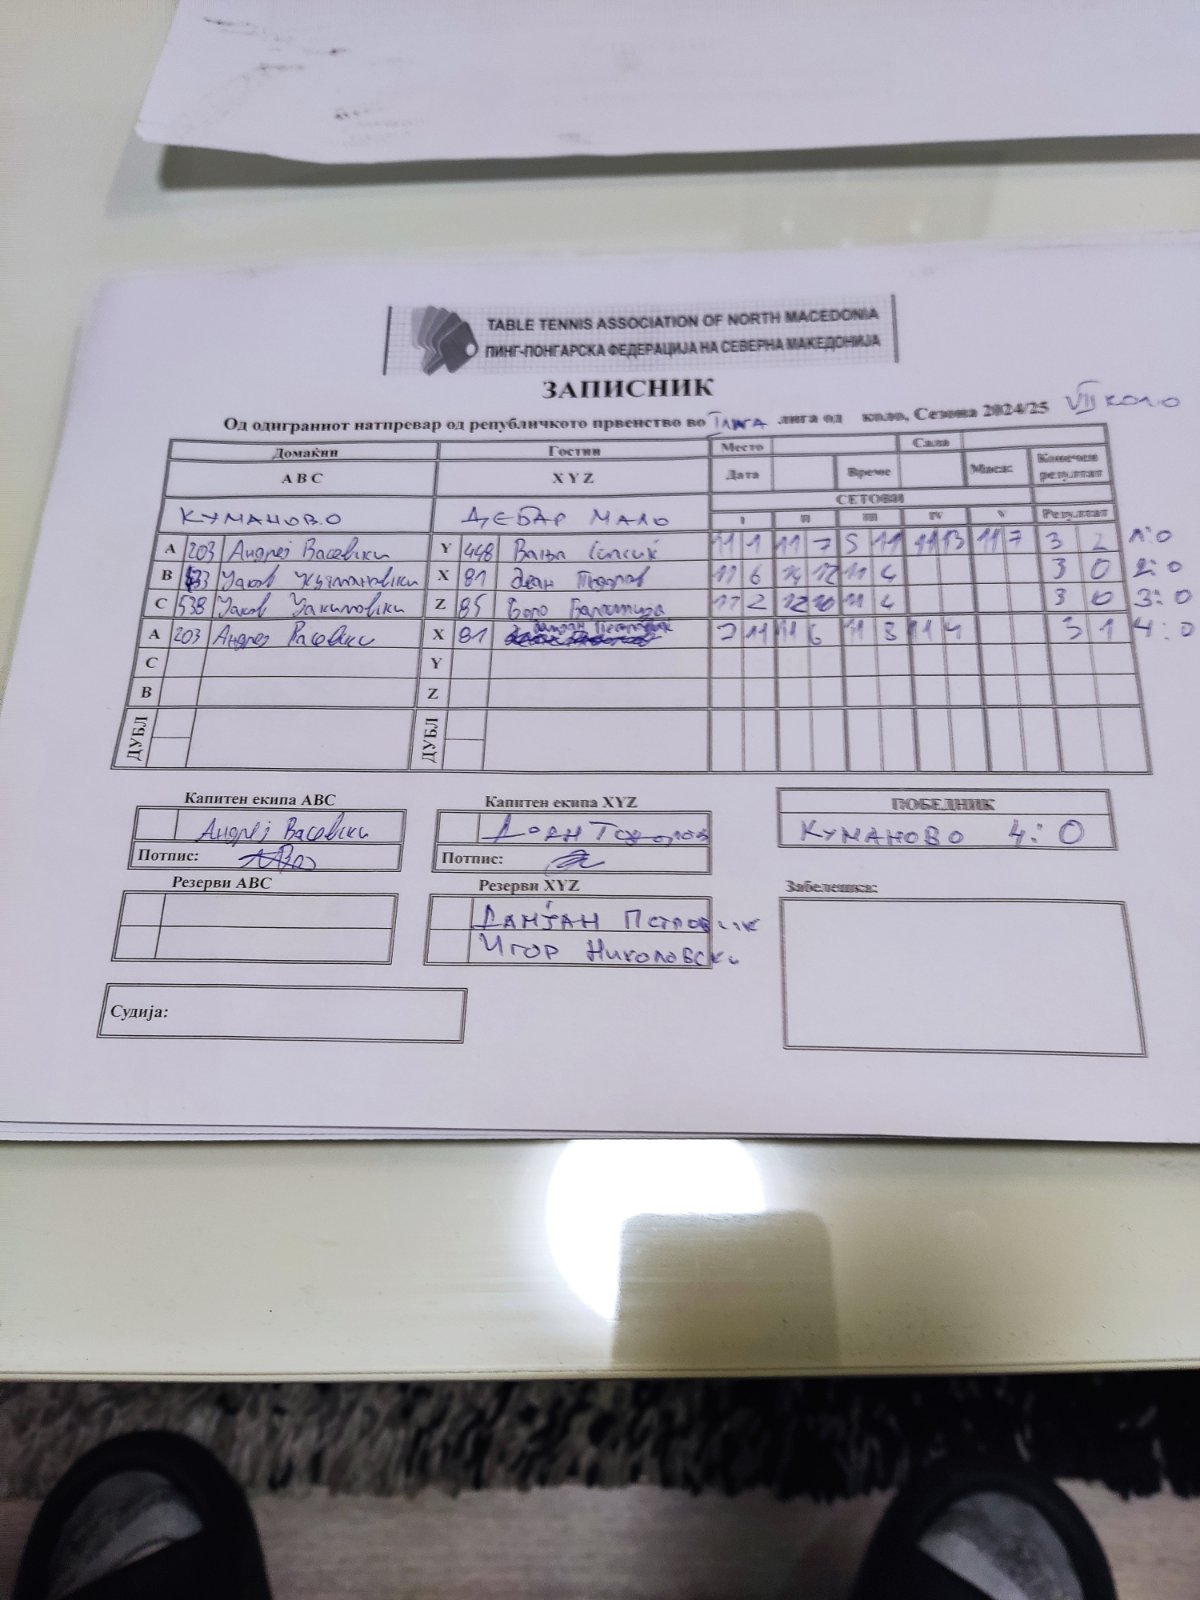 TABLE TENNIS ASSOCIATION OF NORTH MACEDONIA
ПИНГ-ПОНГАРСКА ФЕДЕРАЦИЈА НА СЕВЕРНА МАКЕДОНИЈА
ЗАПИСНИК
Од одиграниот натпревар од републичкото првенство во I ЛИГА лига од коло, Сезона 2024/25 VII КОЛО
Домаќин Гостин Место Сала
A B C X Y Z Дата Време Маса: Конечен резултат
СЕТОВИ
КУМАНОВО ДЕБАР МАЛО I II III IV V Резултат
A 203 Андреј Васевски Y 448 Вања 11 1 11 7 5 11 11 13 11 7 3 2 1:0
B Јаков X 81 11 6 14 12 11 4 3 0 2:0
C 538 Јаков Јакимовски Z 85 11 2 12 10 11 4 3 0 3:0
A 203 Андреј Васевски X 81 Дамјан Петровиќ 7 11 11 6 11 8 11 4 3 1 4:0
C Y
B Z
ДУБЛ ДУБЛ
Капитен екипа ABC Капитен екипа XYZ ПОБЕДНИК
Андреј Васевски КУМАНОВО 4:0
Потпис: Потпис:
Резерви ABC Резерви XYZ Забелешка:
ДАМЈАН ПЕТРОВИЌ
ИГОР НИКОЛОВСКИ
Судија: